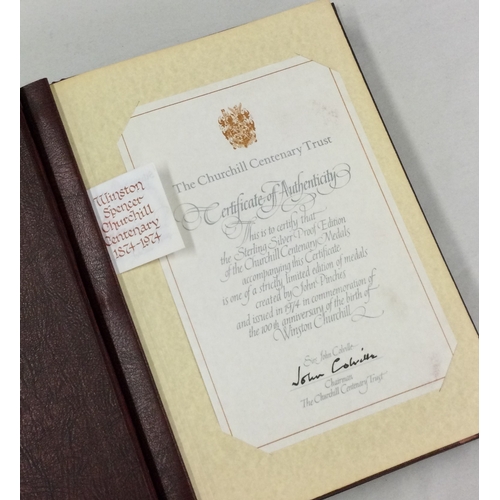 Winston
Spencer
Churchill
Centenary
1874-1974
The Churchill Centenary Trust
Certificate of Authenticity
This is to certify that
the Sterling Silver Proof Edition
of the Churchill Centenary Medals
accompanying this Certificate
is one of a strictly limited edition of medals
created by John Pinches
and issued in 1974 in commemoration of
the 100th anniversary of the birth of
Winston Churchill
Sir John Colville
John Colville
Chairman
The Churchill Centenary Trust